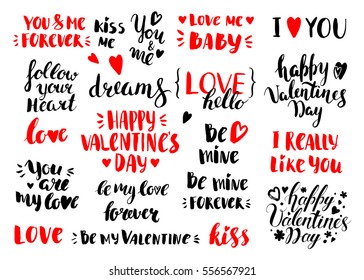 YOU & ME
FOREVER
kiss
me
You
& me
LOVE ME
BABY
I ♥ YOU
follow
your
Heart
dreams
{LOVE}
hello
happy
Valentines
Day
love
HAPPY
VALENTINE'S
DAY
Be
mine
I REALLY
LIKE YOU
You
are
my love
be my love
forever
Be mine
FOREVER
happy
Valentine's
Day
LOVE
Be my VALENTINE
kiss
556567921